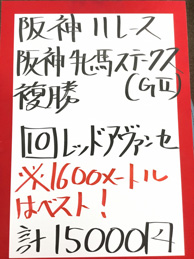 阪神11レース
阪神牝馬ステークス
複勝 (GⅡ)
10 レッドアヴァンセ
※1600メートル
はベスト!
計15000円